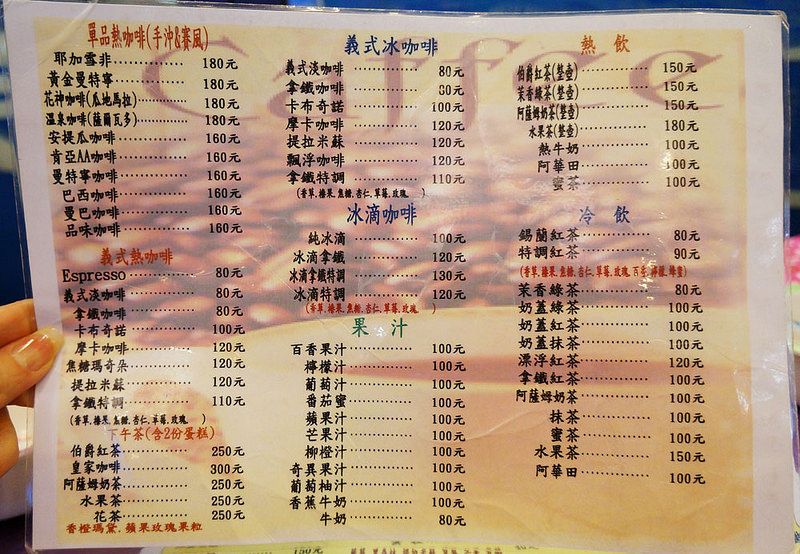 Caffee
單品熱咖啡(手沖&賽風)
耶加雪非 180元
黃金曼特寧 180元
花神咖啡(瓜地馬拉) 180元
溫泉咖啡(薩爾瓦多) 180元
安提瓜咖啡 160元
肯亞AA咖啡 160元
曼特寧咖啡 160元
巴西咖啡 160元
曼巴咖啡 160元
品味咖啡 160元
義式熱咖啡
Espresso 80元
義式淡咖啡 80元
拿鐵咖啡 80元
卡布奇諾 100元
摩卡咖啡 120元
焦糖瑪奇朵 120元
提拉米蘇 120元
拿鐵特調 110元
(香草、榛果、焦糖、杏仁、草莓、玫瑰 )
下午茶(含2份蛋糕)
伯爵紅茶 250元
皇家咖啡 300元
阿薩姆奶茶 250元
水果茶 250元
花茶 250元
香橙瑪黛、蘋果玫瑰果粒
義式冰咖啡
義式淡咖啡 80元
拿鐵咖啡 80元
卡布奇諾 100元
摩卡咖啡 120元
提拉米蘇 120元
飄浮咖啡 120元
拿鐵特調 110元
(香草、榛果、焦糖、杏仁、草莓、玫瑰 )
冰滴咖啡
純冰滴 100元
冰滴拿鐵 120元
冰滴拿鐵特調 130元
冰滴特調 120元
(香草、榛果、焦糖、杏仁、草莓、玫瑰 )
果汁
百香果汁 100元
檸檬汁 100元
葡萄汁 100元
番茄蜜 100元
蘋果汁 100元
芒果汁 100元
柳橙汁 100元
奇異果汁 100元
葡萄柚汁 100元
香蕉牛奶 100元
牛奶 80元
熱飲
伯爵紅茶(整壺) 150元
茉香綠茶(整壺) 150元
阿薩姆奶茶(整壺) 150元
水果茶(整壺) 180元
熱牛奶 100元
阿華田 100元
蜜茶 100元
冷飲
錫蘭紅茶 80元
特調紅茶 90元
(香草、榛果、焦糖、杏仁、草莓、玫瑰、百香、檸檬、蜂蜜)
茉香綠茶 80元
奶蓋綠茶 100元
奶蓋紅茶 100元
奶蓋抹茶 100元
漂浮紅茶 120元
拿鐵紅茶 100元
阿薩姆奶茶 100元
抹茶 100元
蜜茶 100元
水果茶 150元
阿華田 100元
150元